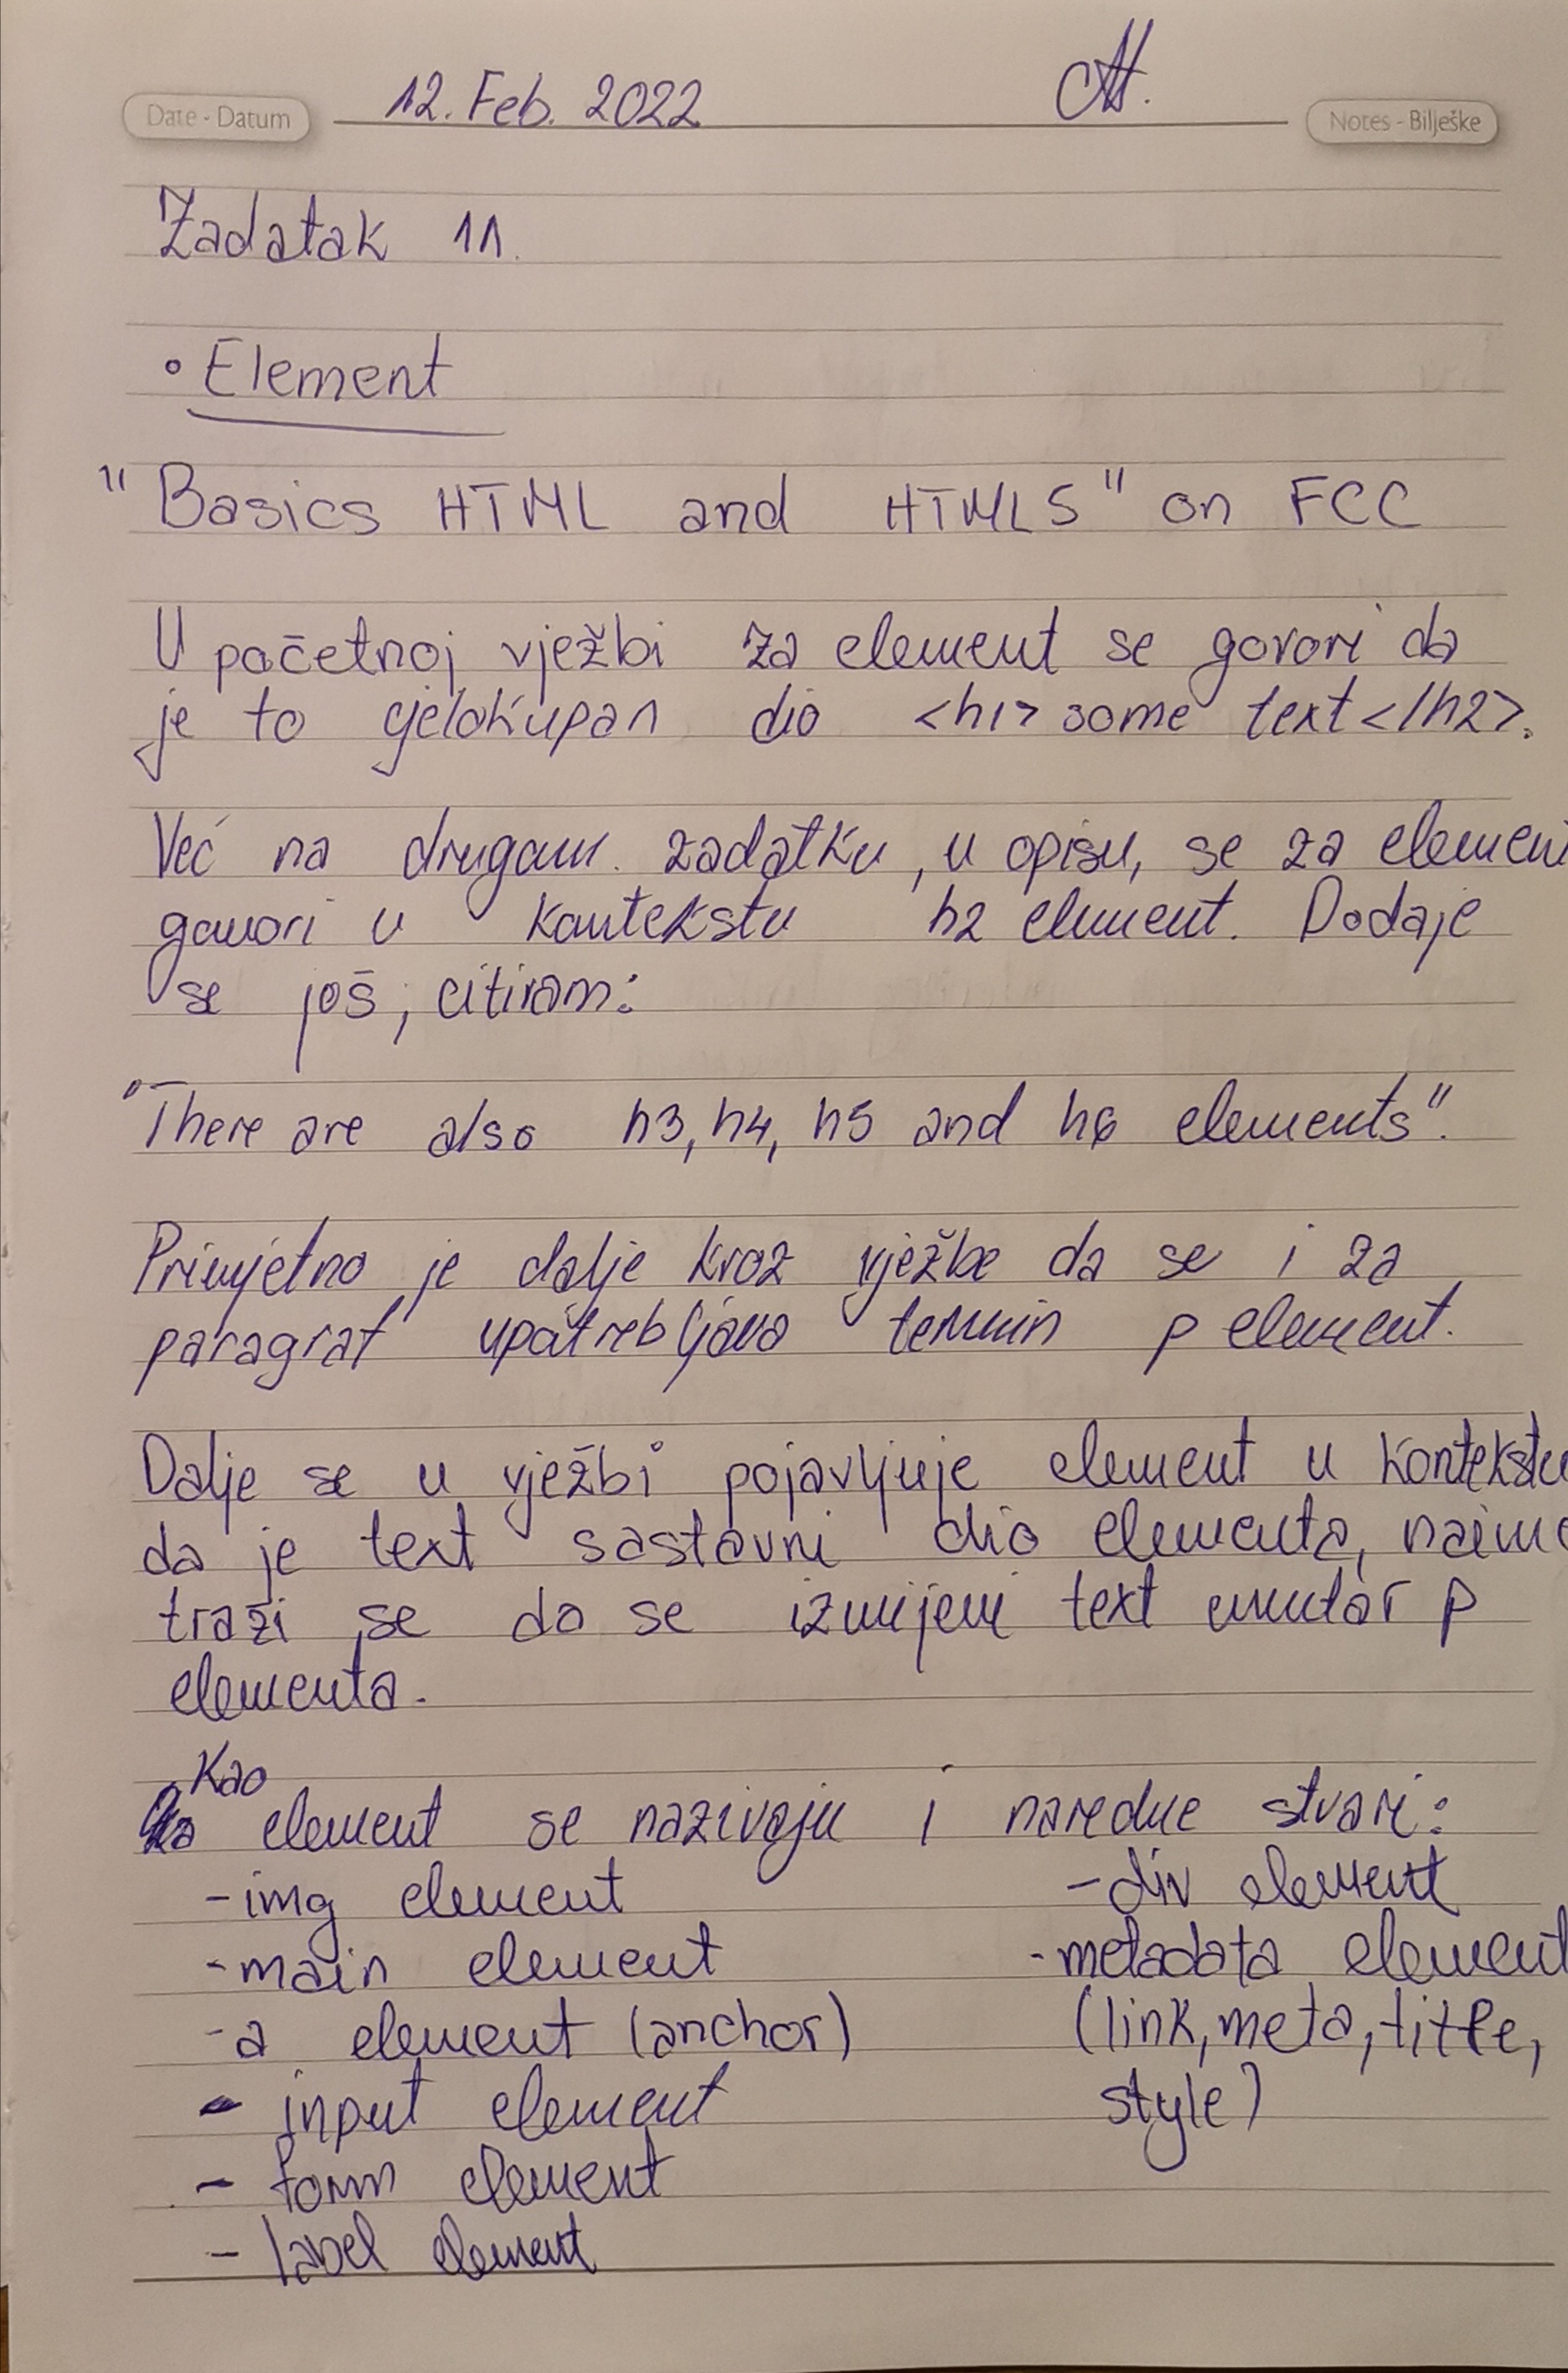 Date - Datum 12. Feb. 2022 Notes - Bilješke
Zadatak 11.
• Element
"Basics HTML and HTML5" on FCC
U početnoj vježbi za element se govori da
je to cjelokupan dio <h1> some text</h2>.
Već na drugom zadatku, u opisu, se za element
govori u kontekstu h2 element. Dodaje
se još, citiram:
"There are also h3, h4, h5 and h6 elements".
Primjetno je dalje kroz vježbe da se i za
paragraf upotrebljava termin p element.
Dalje se u vježbi pojavljuje element u kontekstu
da je text sastavni dio elementa, naime
traži se da se izmijeni text unutar p
elementa.
Kao
element se nazivaju i naredne stvari:
-img element -div element
-main element -metadata element
-a element (anchor) (link, meta, title,
- input element style)
- form element
- label element